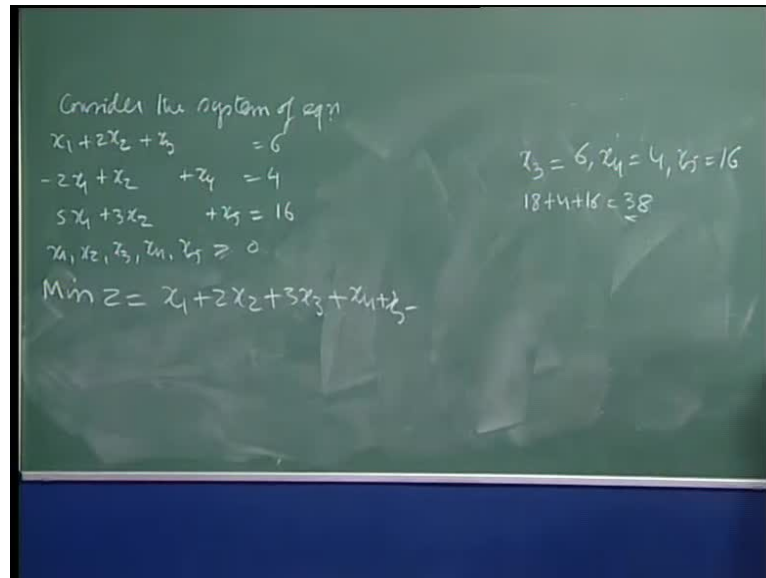 Consider the system of eqn
x₁ + 2x₂ + x₃ = 6
-2x₁ + x₂ + x₄ = 4
5x₁ + 3x₂ + x₅ = 16
x₁, x₂, x₃, x₄, x₅ ≥ 0
Min Z = x₁ + 2x₂ + 3x₃ + x₄ + x₅
x₃ = 6, x₄ = 4, x₅ = 16
18 + 4 + 16 = 38